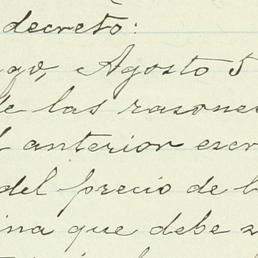 decreto:
ago, Agosto 5
de las razone
l anterior escr
del precio de l
ina que debe